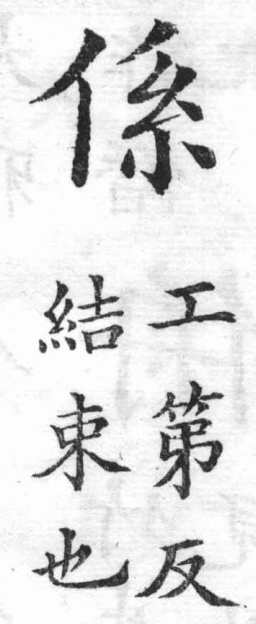 係
工第反
結束也